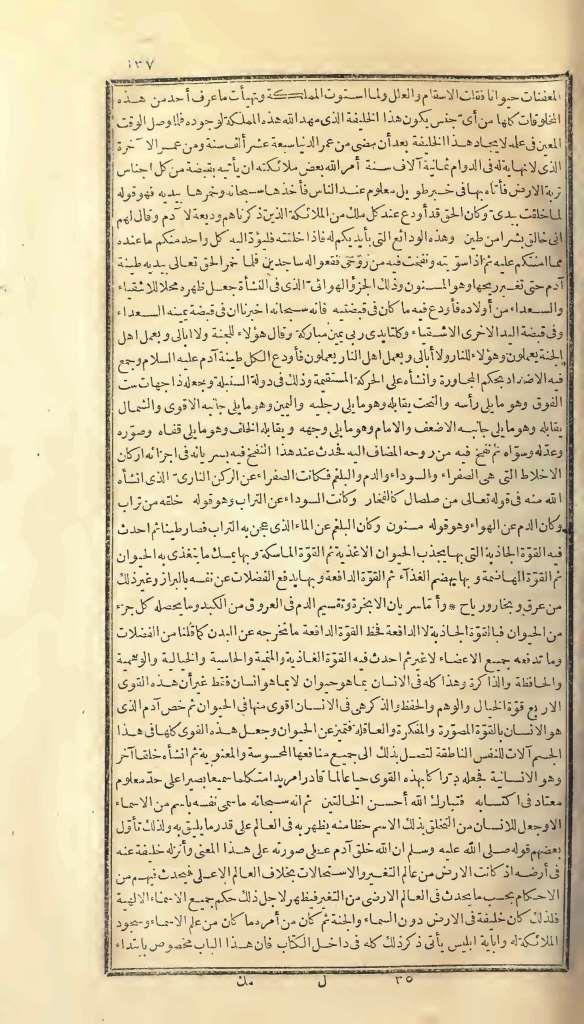 ١٣٧
المعفنات حيوانا فقات الاسقام والعلل ولما استوت المملكة وتهيأت ما عرف أحد من هذه
المخلوقات كلها من أى جنس يكون هذا الخليفة الذى مهد الله هذه المملكة لوجوده فلما وصل الوقت
المعين فى علمه لايجاد هذا الخليفة بعد أن مضى من عمر الدنيا سبعة عشر ألف سنة ومن عمر الآخرة
الذى لا نهاية له فى الدوام ثمانية آلاف سنة أمر الله بعض ملائكته ان يأتيه بقبضة من كل اجناس
تربة الارض فأتاه بها فى خبر طويل معلوم عند الناس فأخذها سبحانه وخمرها بيديه فهو قوله
لما خلقت بيدى وكان الحق قد أودع عند كل ملك من الملائكة الذين ذكرناهم وديعة لآدم وقال لهم
انى خالق بشرا من طين وهذه الودائع التى بأيديكم له فاذا خلقته فليؤد اليه كل واحد منكم ما عنده
مما امنتكم عليه ثم اذا سويته ونفخت فيه من روحى فقعوا له ساجدين فلما خمر الحق تعالى بيديه طينة
آدم حتى تغير ريحها وهو المسنون وذلك الجزء الهوائى الذى فى النشأة جعل ظهره محلا للاشقياء
والسعداء من أولاده فأودع فيه ما كان فى قبضتيه فانه سبحانه اخبرنا ان فى قبضة يمينه السعداء
وفى قبضة اليد الاخرى الاشقياء وكلتا يدى ربى يمين مباركة وقال هؤلاء للجنة ولا ابالى وبعمل اهل
الجنة يعملون وهؤلاء للنار ولا أبالى وبعمل اهل النار يعملون فأودع الكل طينة آدم عليه السلام وجمع
فيه الاضداد بحكم المجاورة وانشأه على الحركة المستقيمة وذلك فى دولة السنبلة وجعله ذا جهات ست
الفوق وهو ما يلى رأسه والتحت يقابله وهو ما يلى رجليه واليمين وهو ما يلى جانبه الاقوى والشمال
يقابله وهو ما يلى جانبه الاضعف والامام وهو ما يلى وجهه ويقابله الخلف وهو ما يلى قفاه وصوره
وعدله وسواه ثم نفخ فيه من روحه المضاف اليه فحدث عند هذا النفخ فيه بسريانه فى اجزائه اركان
الاخلاط التى هى الصفراء والسوداء والدم والبلغم فكانت الصفراء عن الركن النارى الذى انشأه
الله منه فى قوله تعالى من صلصال كالفخار وكانت السوداء عن التراب وهو قوله خلقه من تراب
وكان الدم عن الهواء وهو قوله مسنون وكان البلغم عن الماء الذى عجن به التراب فصار طينا ثم احدث
فيه القوة الجاذبة التى بها يجذب الحيوان الاغذية ثم القوة الماسكة وبها يمسك ما يتغذى به الحيوان
ثم القوة الهاضمة وبها يهضم الغذآء ثم القوة الدافعة وبها يدفع الفضلات عن نفسه بالبراز وغير ذلك
من عرق وبخار ورياح * وأما سريان الابخرة وتقسيم الدم فى العروق من الكبد وما يحصله كل جزء
من الحيوان فبالقوة الجاذبة لا الدافعة فحظ القوة الدافعة ما تخرجه عن البدن كما قلنا من الفضلات
وما تدفعه جميع الاعضاء لا غير ثم احدث فيه القوة الغاذية والمنمية والحاسية والخيالية والوهمية
والحافظة والذاكرة وهذا كله فى الانسان بما هو حيوان لا بما هو انسان فقط غير أن هذه القوى
الاربع قوة الخيال والوهم والحفظ والذكر هى فى الانسان اقوى منها فى الحيوان ثم خص آدم الذى
هو الانسان بالقوة المصورة والمفكرة والعاقلة فتميز عن الحيوان وجعل هذه القوى كلها فى هذا
الجسم آلات للنفس الناطقة لتصل بذلك الى جميع منافعها المحسوسة والمعنوية ثم انشأه خلقا آخر
وهو الانسانية فجعله درّاكا بهذه القوى حيا عالما قادرا مريدا متكلما سميعا بصيرا على حد معلوم
معتاد فى اكتسابه فتبارك الله أحسن الخالقين ثم انه سبحانه ما سمى نفسه باسم من الاسماء
الا وجعل للانسان من التخلق بذلك الاسم حظا منه يظهر به فى العالم على قدر ما يليق به ولذلك تأول
بعضهم قوله صلى الله عليه وسلم ان الله خلق آدم على صورته على هذا المعنى وأنزله خليفة عنه
فى أرضه اذ كانت الارض من عالم التغيير والاستحالات بخلاف العالم الاعلى فيحدث فيهم من
الاحكام بحسب ما يحدث فى العالم الارضى من التغير فيظهر لاجل ذلك حكم جميع الاسماء الالهية
فلذلك كان خليفة فى الارض دون السماء والجنة ثم كان من أمره ما كان من علم الاسماء وسجود
الملائكة له واباية ابليس يأتى ذكر ذلك كله فى داخل الكتاب فان هذا الباب مخصوص بابتداء
٣٥ ل مك